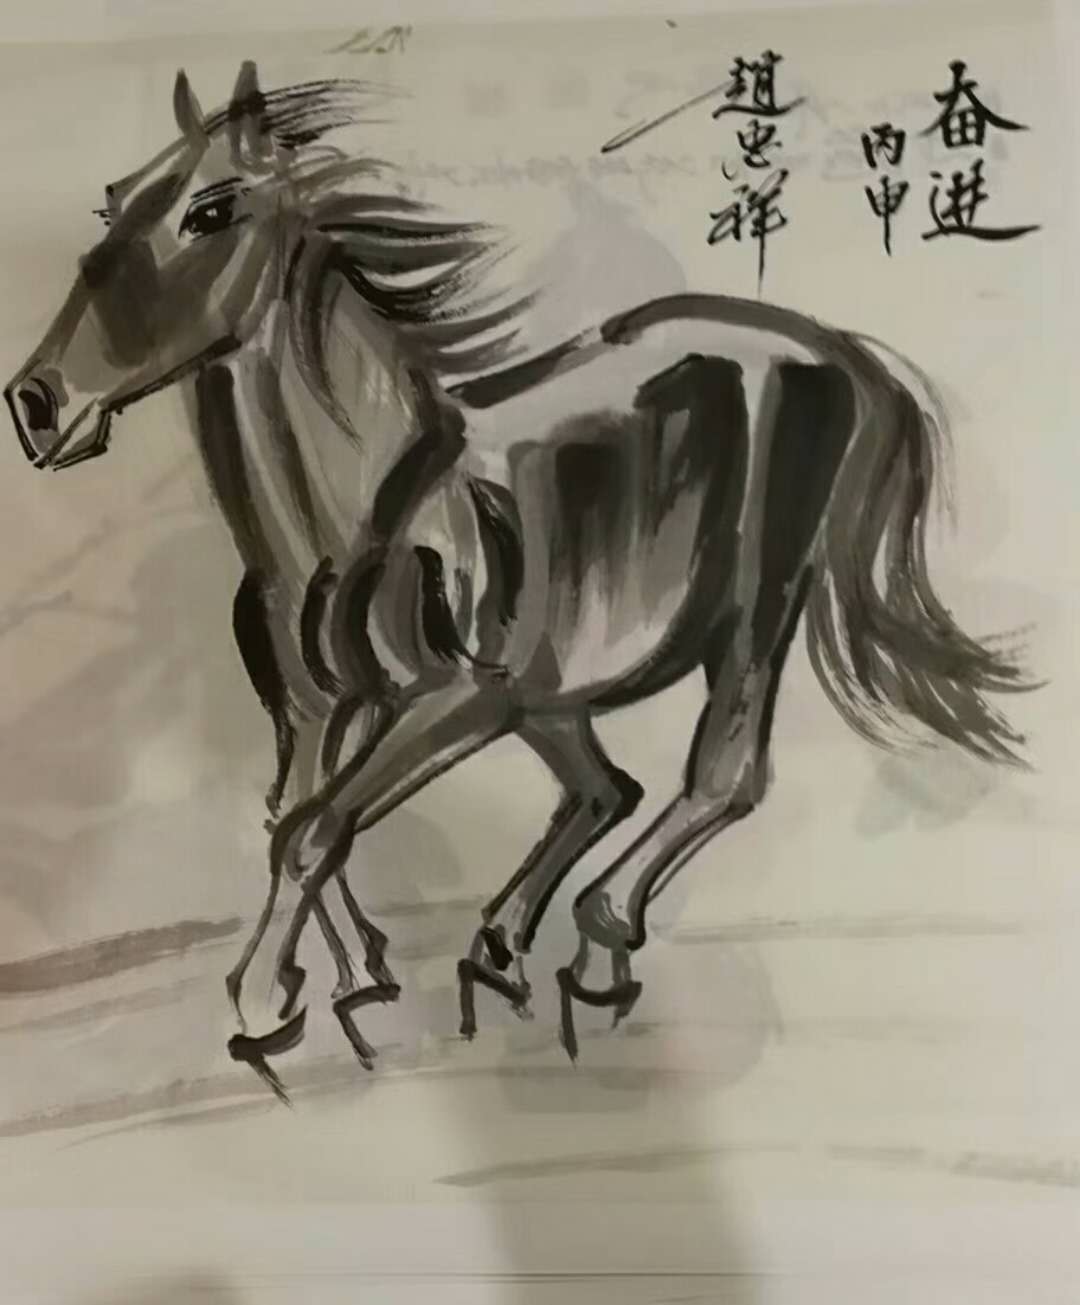 奋进
丙申
趙忠祥